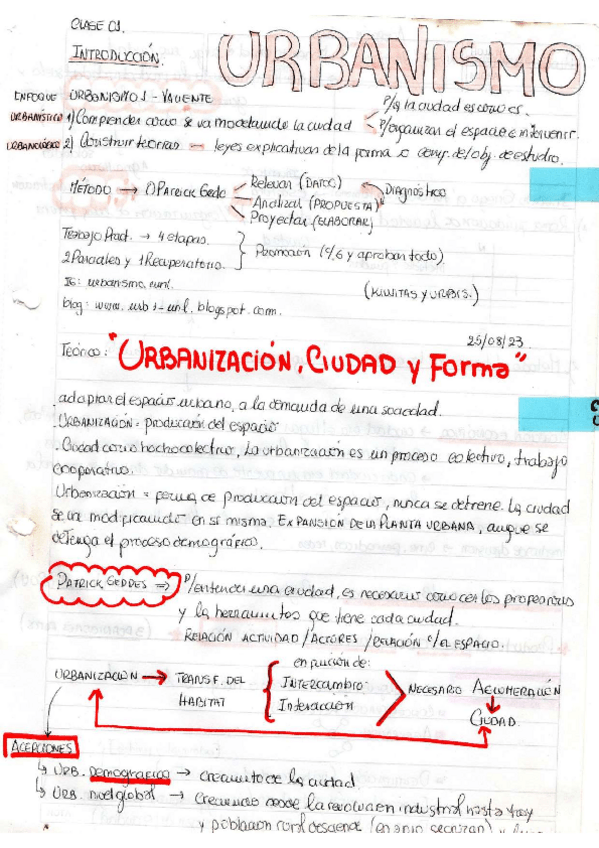 CLASE 01.
INTRODUCCIÓN.
URBANISMO
ENFOQUE URBANISMO 1 - VALIENTE
URBANÍSTICO 1) Comprender como se va modelando la ciudad
P/q la ciudad es como es.
P/organizar el espacio e intervenir.
URBANOLÓGICO 2) Construir teorías — leyes explicativas de la forma o conf. del obj. de estudio.
MÉTODO → Patrick Geddes
Relevar (DATOS)
Analizar (PROPUESTA)
Proyectar (ELABORAR)
Diagnóstico
Trabajo Pract. → 4 etapas.
2 Parciales y 1 Recuperatorio.
Promoción (c/6 y aprobar todo).
IG: urbanismo.unl.
(KIWITAS Y URBIS.)
blog: www.urb1-unl.blogspot.com.
25/08/23.
Teórico: "URBANIZACIÓN, CIUDAD y Forma"
. adaptar el espacio urbano, a la demanda de una sociedad.
. URBANIZACIÓN = producción del espacio
. Ciudad como hecho colectivo, La urbanización es un proceso colectivo, trabajo
cooperativo.
Urbanización = forma de producción del espacio, nunca se detiene. La ciudad
se va modificando en sí misma. EXPANSIÓN DE LA PLANTA URBANA, aunque se
detenga el proceso demográfico.
PATRICK GEDDES ⇒ P/entender una ciudad, es necesario conocer los
y las herramientas que tiene cada ciudad.
RELACIÓN ACTIVIDAD / ACTORES / RELACIÓN c/ EL ESPACIO.
URBANIZACIÓN → TRANSF. DEL
HABITAT
en función de:
Intercambio
Interacción
NECESARIO AGLOMERACIÓN
↓
CIUDAD.
ACEPCIONES
↳ URB. Demográfica → crecimiento de la ciudad.
↳ URB. nivel global → Crecimiento desde la revolución industrial hasta hoy
y población rural desciende